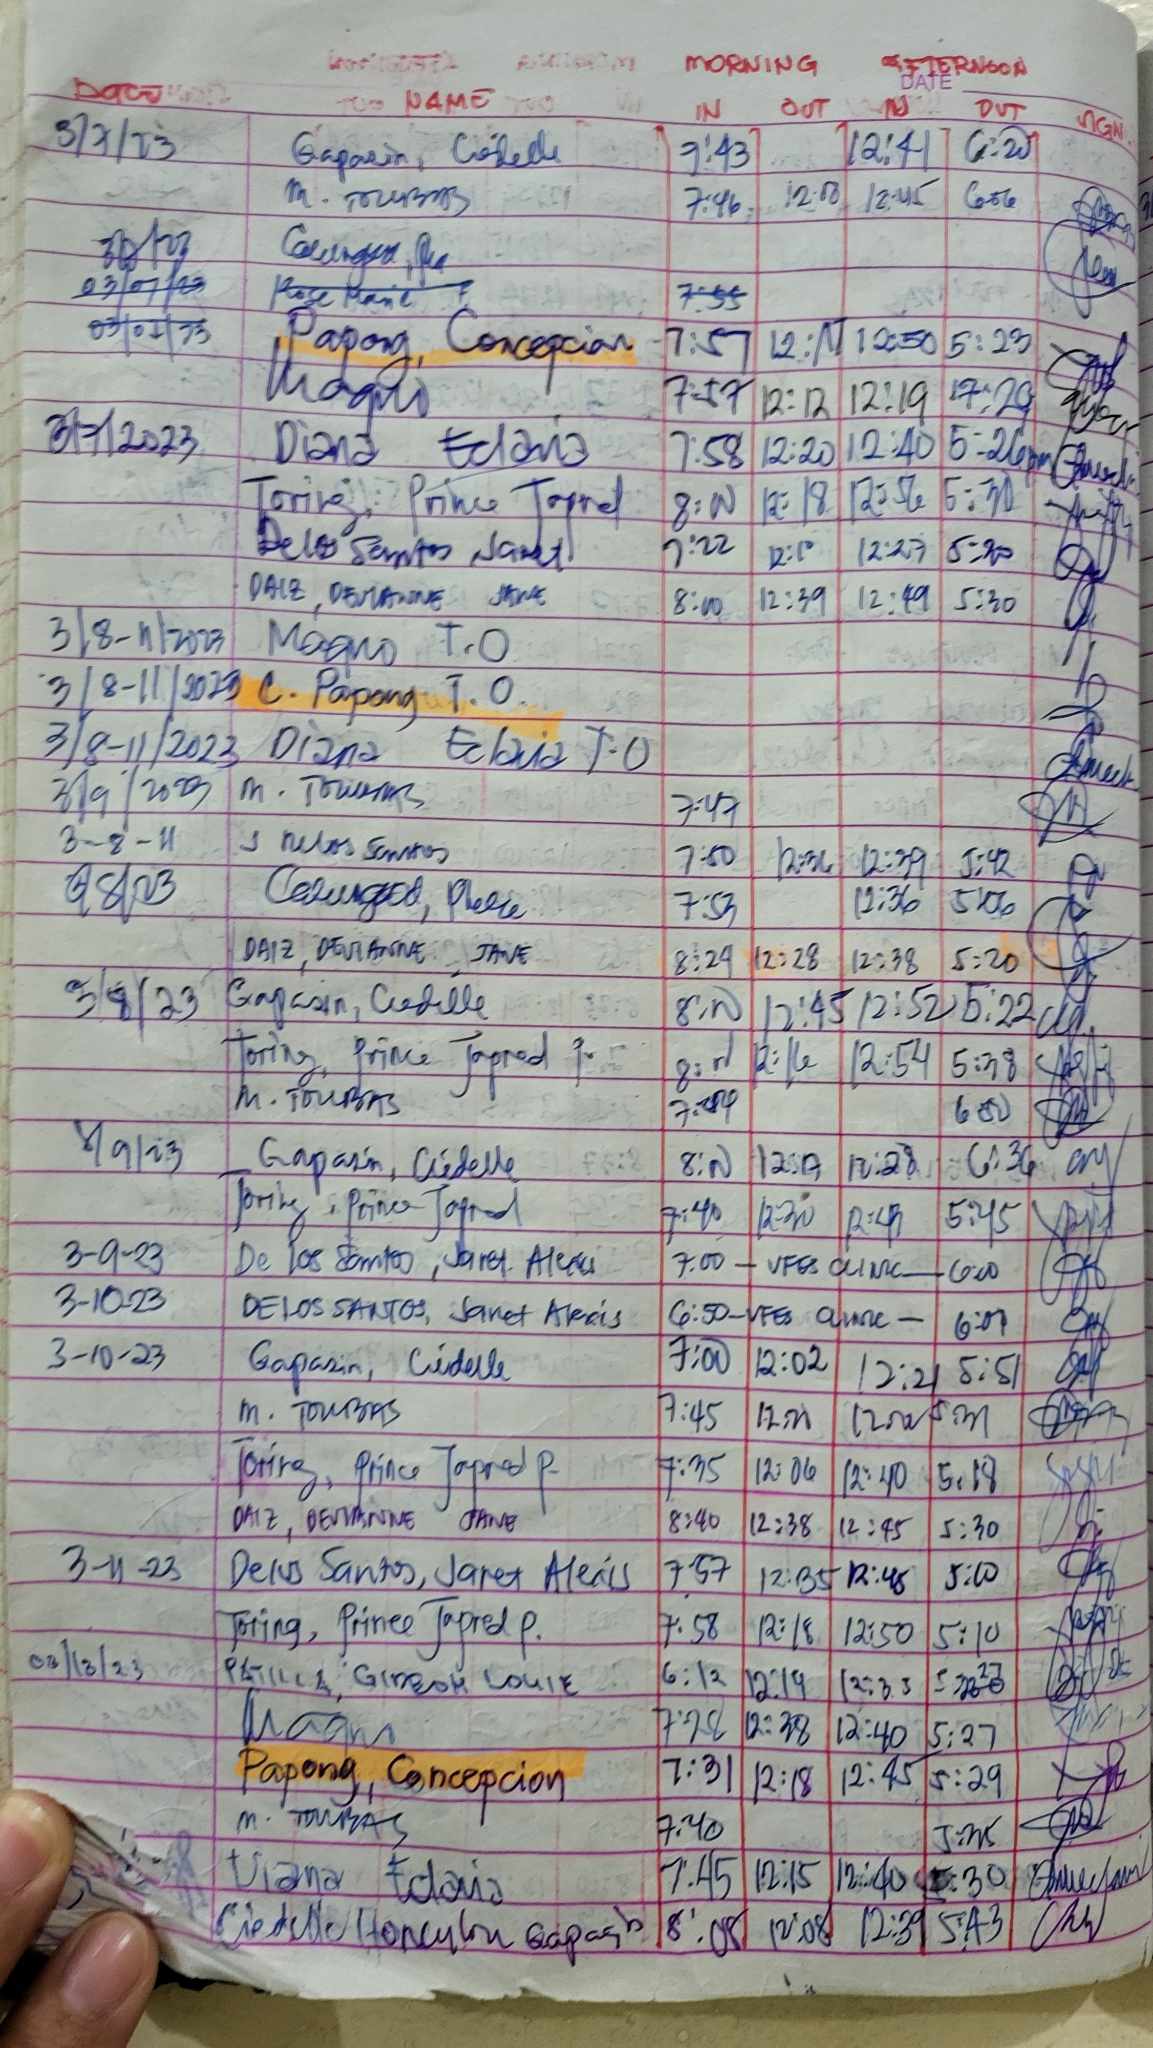 MORNING AFTERNOON
DATE
DATE NAME IN OUT IN OUT SIGN.
3/7/23 Gapasin, Ciedelle 7:43 12:41 6:20
M. TOURBAS 7:46 12:00 12:45 6:06
03/07/23 Rose Marie 7:55
Papong, Concepcion 7:57 12:N 12:50 5:23
Magno 7:57 12:12 12:19 17:29
3/7/2023 Diana Eclavia 7:58 12:20 12:40 5-26pm
Toring, Prince Japred 8:N 12:18 12:56 5:30
Delos Santos Janet 7:22 12:27 5:30
DAIZ, DEVIANNE JANE 8:00 12:39 12:49 5:30
3/8-11/2023 Magno T.O
3/8-11/2023 C. Papong T.O.
3/8-11/2023 Diana Eclavia T.O
3/9/2023 M. TOURBAS 7:47
3-8-11 J Delos Santos 7:50 12:36 12:39 5:42
3/8/23 7:53 12:36 5:06
DAIZ, DEVIANNE JANE 8:29 12:28 12:38 5:20
3/8/23 Gapasin, Ciedelle 8:N 12:45 12:52 5:22
Toring, Prince Japred P. 8:N 12:16 12:54 5:38
M. TOURBAS 6:00
3/9/23 Gapasin, Ciedelle 8:N 12:28 6:36
Toring, Prince Japred 7:40 12:30 12:43 5:45
3-9-23 De los Santos, Janet Alexis 7:00 - VFES CLINIC - 6:00
3-10-23 DELOS SANTOS, Janet Alexis 6:50 - VFES CLINIC - 6:07
3-10-23 Gapasin, Ciedelle 7:00 12:02 12:21 5:51
M. TOURBAS 7:45 5:31
Toring, Prince Japred P. 7:35 12:06 12:40 5:18
DAIZ, DEVIANNE JANE 8:40 12:38 12:45 5:30
3-11-23 Delos Santos, Janet Alexis 7:57 12:35 12:45 5:00
Toring, Prince Japred P. 7:58 12:18 12:50 5:10
03/13/23 GIDEON LOUIE 6:12 12:19 12:33
Magno 7:28 12:38 12:40 5:27
Papong, Concepcion 7:31 12:18 12:45 5:29
M. TOURBAS 7:40 5:35
Diana Eclavia 7:45 12:15 12:40 5:30
Ciedelle Gapasin 8:08 12:08 12:39 5:43